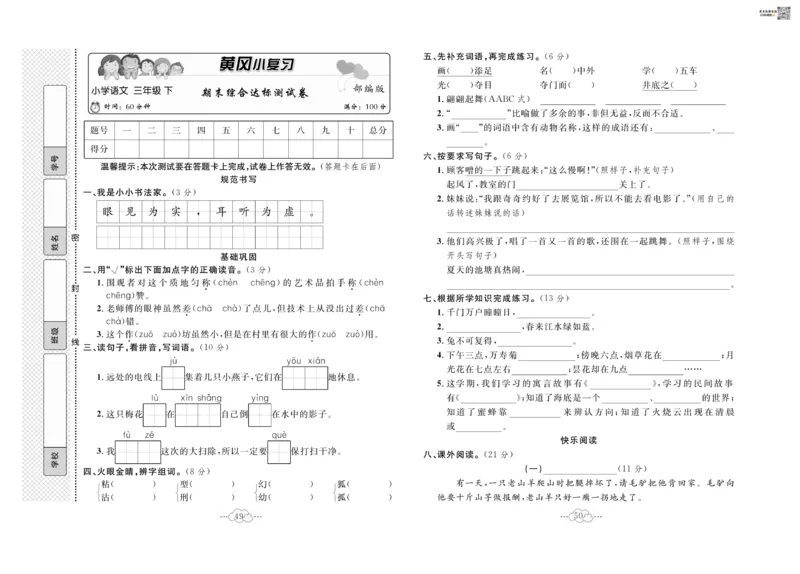 黄冈小复习
小学语文 三年级 下
期末综合达标测试卷
部编版
时间：60分钟
满分：100分
题号 一 二 三 四 五 六 七 八 九 十 总分
得分
温馨提示：本次测试要在答题卡上完成,试卷上作答无效。(答题卡在后面)
规范书写
一、我是小小书法家。(3分)
眼 见 为 实 ， 耳 听 为 虚 。
基础巩固
二、用“√”标出下面加点字的正确读音。(3分)
1. 围观者对这个质地匀称(chèn chēng)的艺术品拍手称(chèn
chēng)赞。
2. 老师傅的眼神虽然差(chā chà)了点儿,但技术上从没出过差(chā
chà)错。
3. 这个作(zuō zuò)坊虽然小,但是在村里有很大的作(zuō zuò)用。
三、读句子,看拼音,写词语。(10分)
jù yōu xián
1. 远处的电线上 集着几只小燕子,它们在 地休息。
lù xīn shǎng yìng
2. 这只梅花 在 自己倒 在水中的影子。
fù zé quē
3. 我 这次的大扫除,所以一定要 保打扫干净。
四、火眼金睛,辨字组词。(8分)
粘( ) 型( ) 幻( ) 狐( )
沾( ) 刑( ) 幼( ) 孤( )
49
学号
姓名
班级
学校
密
封
线
五、先补充词语,再完成练习。(6分)
画( )添足 名( )中外 学( )五车
光( )夺目 夺门而( ) 井底之( )
1. 翩翩起舞(AABC式)
2. “ ”比喻做了多余的事,非但无益,反而不合适。
3. 画“ ”的词语中含有动物名称,这样的成语还有： 、
。
六、按要求写句子。(6分)
1. 顾客噌的一下子跳起来：“这么慢啊！”(照样子,补充句子)
起风了,教室的门 关上了。
2. 妹妹说：“我跟奇奇约好了去展览馆,所以不能去看电影了。”(用自己的
话转述妹妹说的话)
3. 他们高兴极了,唱了一首又一首的歌,还围在一起跳舞。(照样子,围绕
开头写句子)
夏天的池塘真热闹,
。
七、根据所学知识完成练习。(13分)
1. 千门万户曈曈日, 。
2. ,春来江水绿如蓝。
3. 兔不可复得, 。
4. 下午三点,万寿菊 ;傍晚六点,烟草花在 ;月
光花在七点左右 ;昙花却在九点 ……
5. 这学期,我们学习的寓言故事有《 》,学习的民间故事
有《 》;知道了海底是一个 、 的世界;
知道了蜜蜂靠 来辨认方向;知道了火烧云出现在清晨
或 。
快乐阅读
八、课外阅读。(21分)
(一) (11分)
有一天,一只老山羊爬山时把腿摔坏了,请毛驴把他背回家。毛驴向
他要十斤山芋做报酬,老山羊只好一瘸一拐地走了。
50